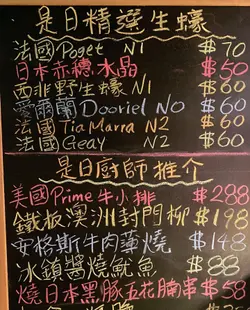 是日精選生蠔
法國 Poget N1 $70
日本赤穗水晶 $50
西非野生蠔 N1 $60
愛爾蘭 Dooriel NO $60
法國 Tia Marra N2 $60
法國 Geay N2 $60
是日廚師推介
美國 Prime 牛小排 $288
鐵板澳洲封門柳 $198
安格斯牛肉薄燒 $148
冰鎮醬燒魷魚 $88
燒日本黑豚五花腩串 $58